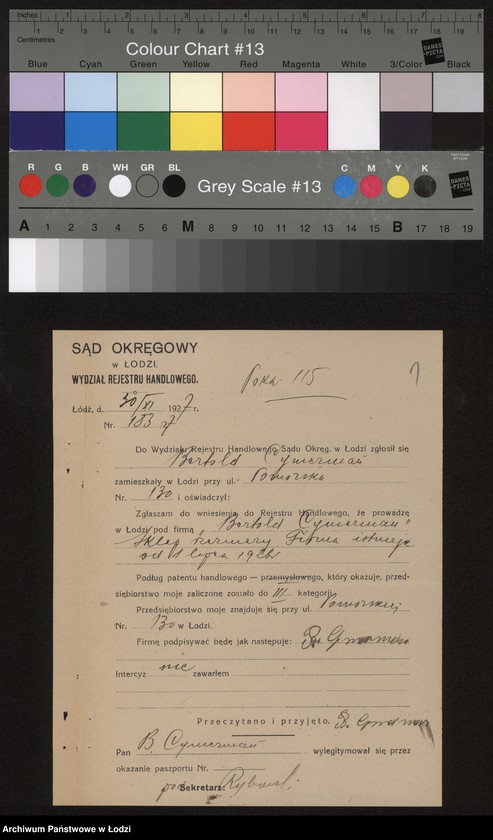 Inches 1 2 3 4 5 6 7 8
Centimetres 1 2 3 4 5 6 7 8 9 10 11 12 13 14 15 16 17 18 19
Colour Chart #13
DANES-PICTA
Blue Cyan Green Yellow Red Magenta White 3/Color Black
R G B WH GR BL Grey Scale #13 C M Y K
DANES-PICTA
A 1 2 3 4 5 6 M 8 9 10 11 12 13 14 15 B 17 18 19
SĄD OKRĘGOWY
w ŁODZI.
WYDZIAŁ REJESTRU HANDLOWEGO.
115
Łódź, d. 30/XI 1927 r.
Nr. 183 27
Do Wydziału Rejestru Handlowego Sądu Okręg. w Łodzi zgłosił się
Bertold Cymerman
zamieszkały w Łodzi przy ul. Pomorska
Nr. 130 i oświadczył:
Zgłaszam do wniesienia do Rejestru Handlowego, że prowadzę
w Łodzi pod firmą "Bertold Cymerman"
Sklep Firma istnieje
od 1 lipca
Podług patentu handlowego — przemysłowego, który okazuje, przed-
siębiorstwo moje zaliczone zostało do III kategorji
Przedsiębiorstwo moje znajduje się przy ul. Pomorskiej
Nr. 130 w Łodzi.
Firmę podpisywać będę jak następuje: B. Cymerman
Intercyz nie zawarłem
Przeczytano i przyjęto. B. Cymerman
Pan B. Cymerman wylegitymował się przez
okazanie paszportu Nr.
Sekretarz:
Archiwum Państwowe w Łodzi